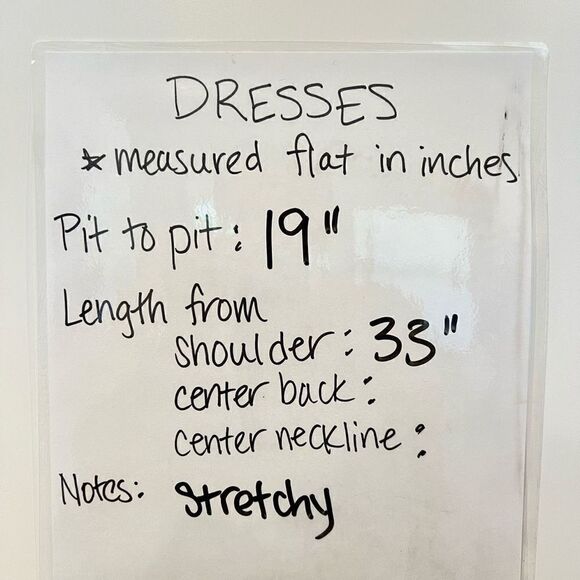 DRESSES
* measured flat in inches
Pit to pit: 19"
Length from
shoulder: 33"
center back:
center neckline:
Notes: stretchy